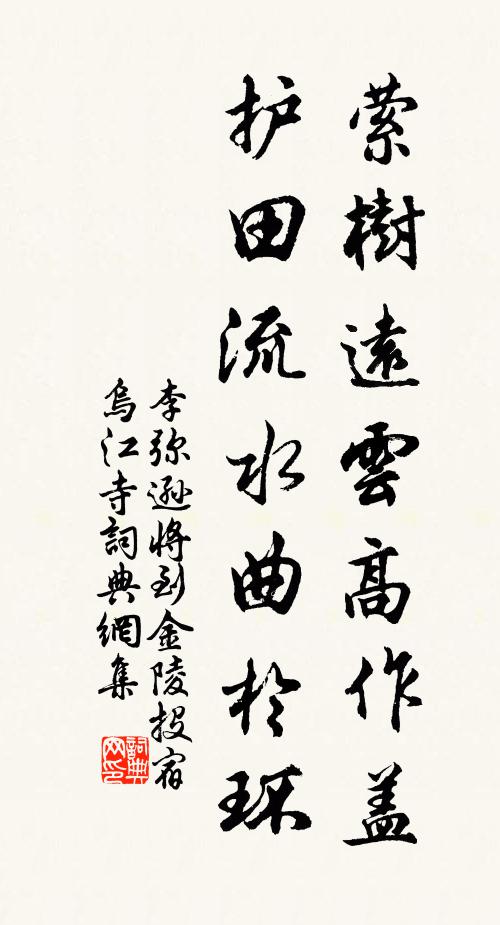 萦樹遠雲高作盖
护田流水曲於环
李弥遜將到金陵投宿
烏江寺詞典網集
詞典网印